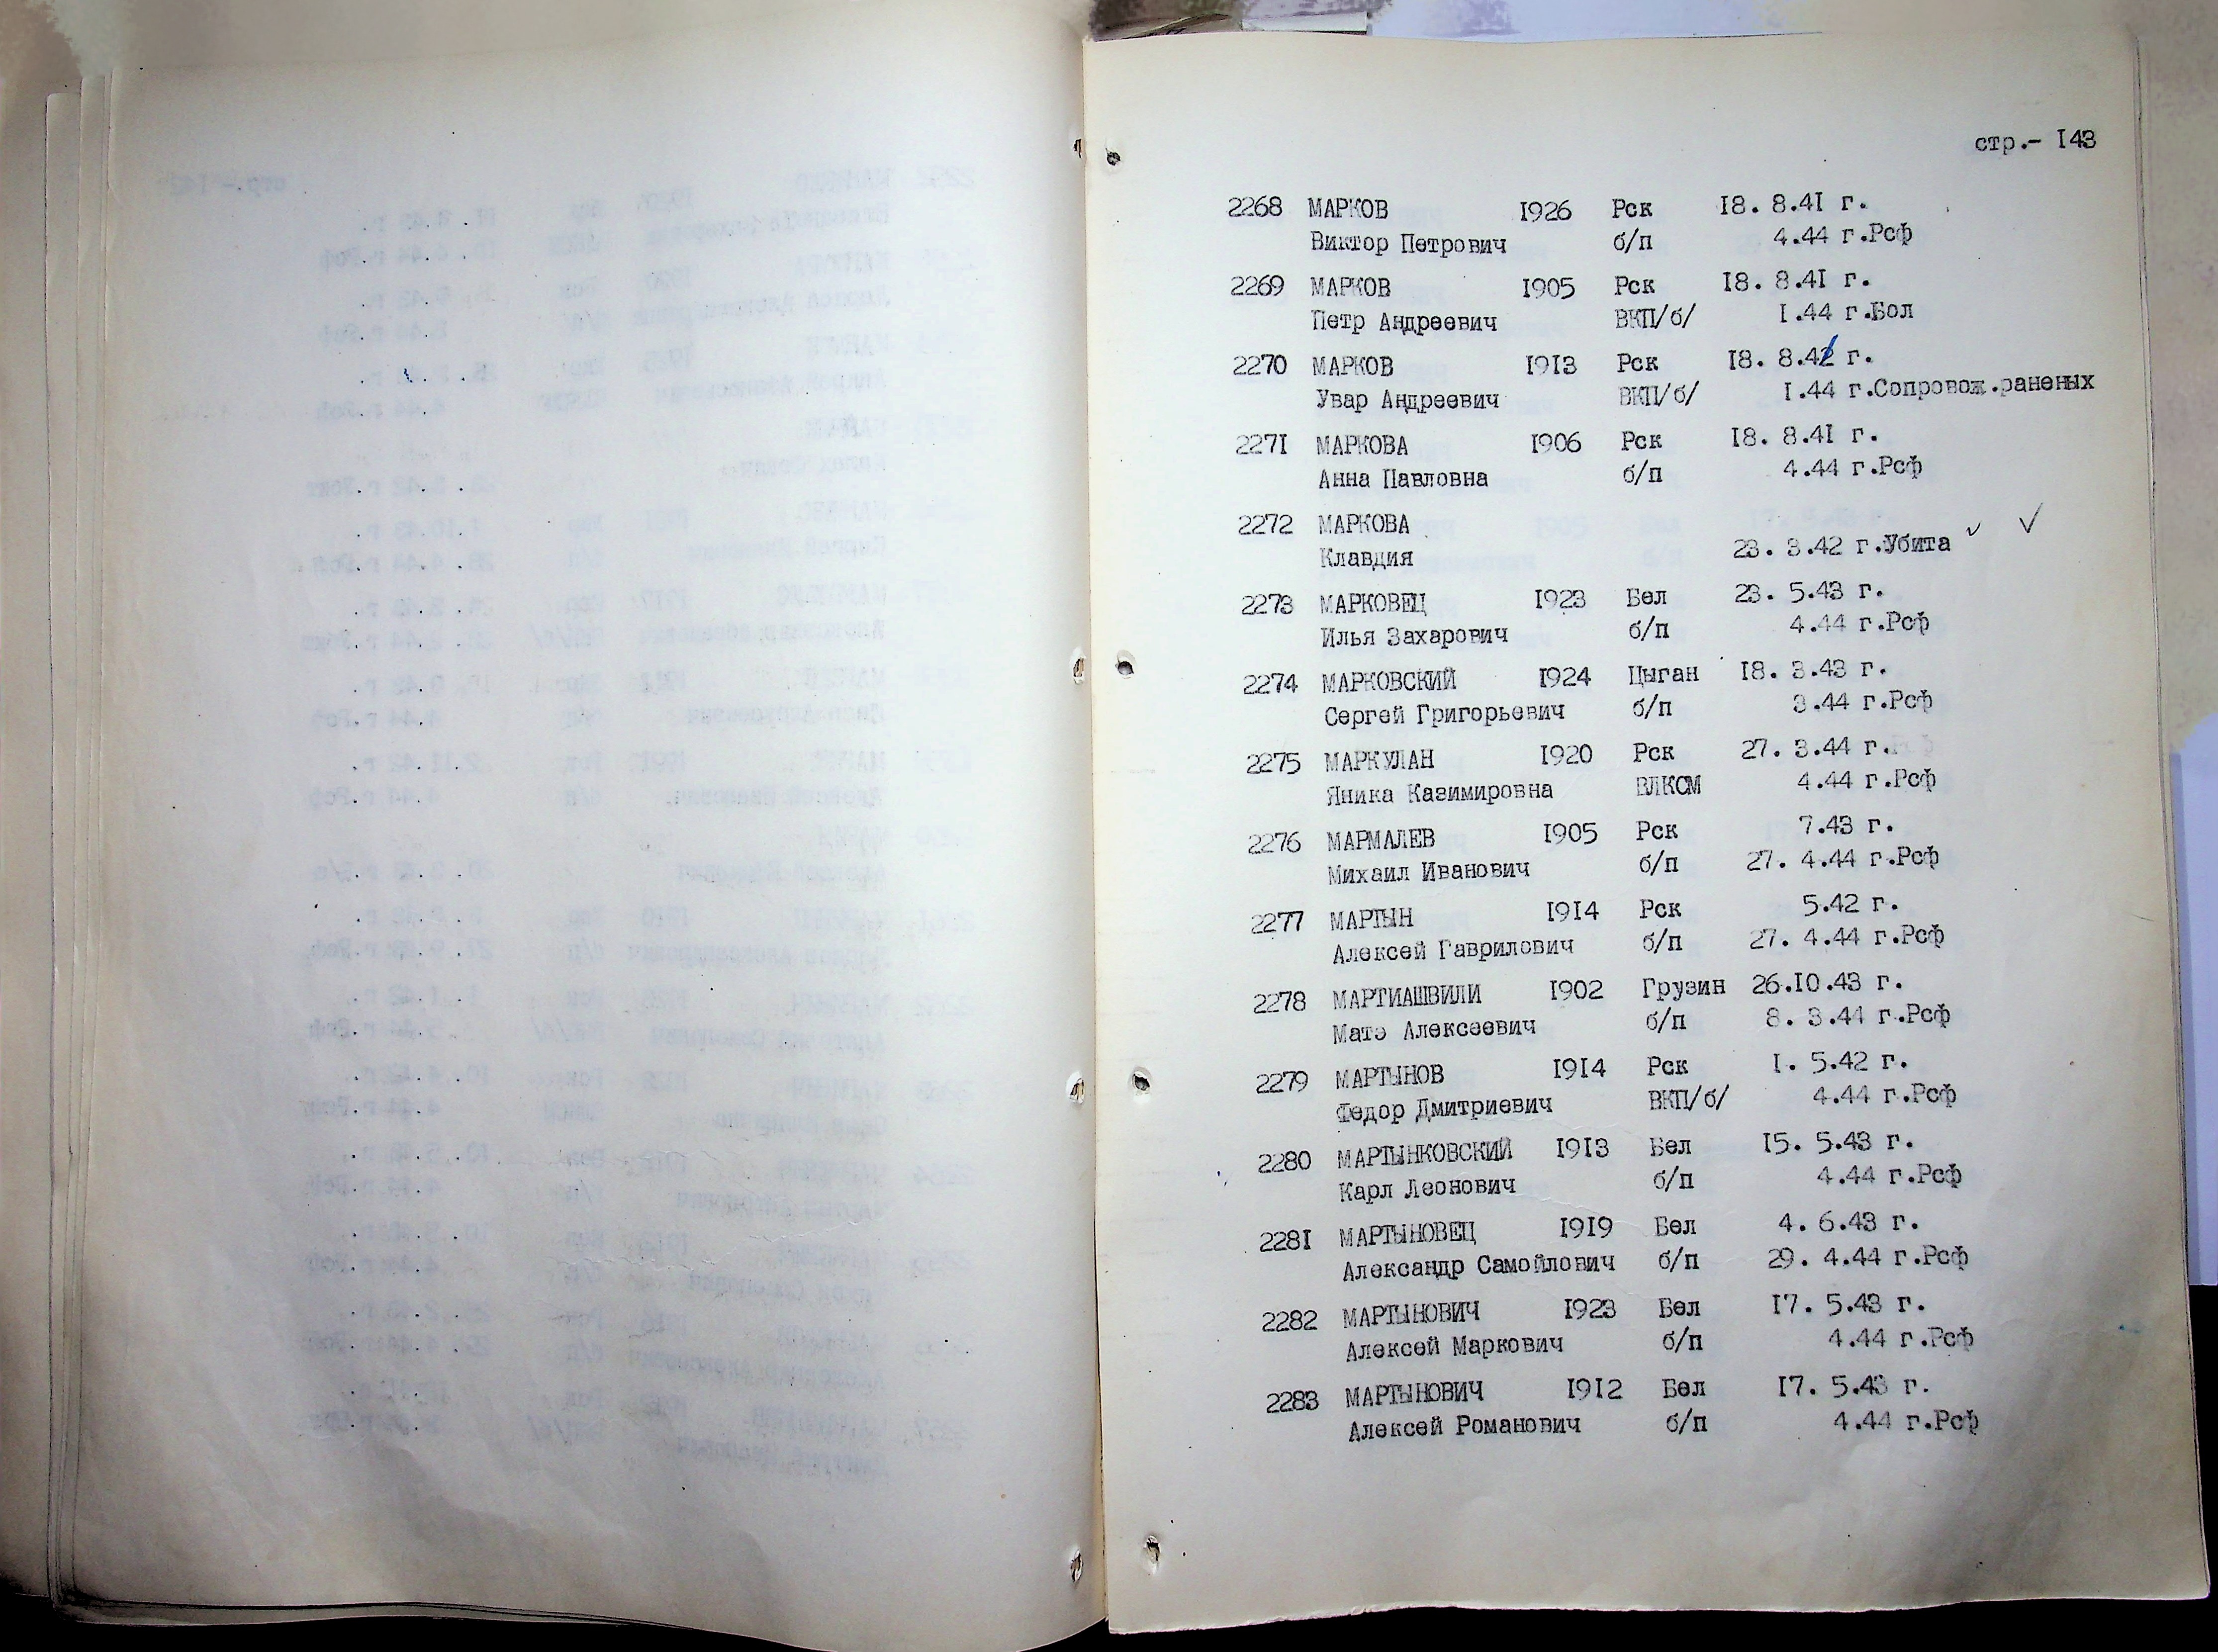 стр.- I43
2268 МАРКОВ I926 Рск I8. 8.4I г.
Виктор Петрович б/п 4.44 г.Рсф
2269 МАРКОВ I905 Рск I8. 8.4I г.
Петр Андреевич ВКП/б/ I.44 г.Бол
2270 МАРКОВ I9I3 Рск I8. 8.4 г.
Увар Андреевич ВКП/б/ I.44 г.Сопровож.раненых
227I МАРКОВА I906 Рск I8. 8.4I г.
Анна Павловна б/п 4.44 г.Рсф
2272 МАРКОВА
Клавдия 23. 3.42 г.Убита
2273 МАРКОВЕЦ I923 Бел 23. 5.43 г.
Илья Захарович б/п 4.44 г.Рсф
2274 МАРКОВСКИЙ I924 Цыган I8. 3.43 г.
Сергей Григорьевич б/п 3.44 г.Рсф
2275 МАРКУЛАН I920 Рск 27. 3.44 г.
Яника Казимировна ВЛКСМ 4.44 г.Рсф
2276 МАРМАЛЕВ I905 Рск 7.43 г.
Михаил Иванович б/п 27. 4.44 г.Рсф
2277 МАРТЫН I9I4 Рск 5.42 г.
Алексей Гаврилович б/п 27. 4.44 г.Рсф
2278 МАРТИАШВИЛИ I902 Грузин 26.I0.43 г.
Матэ Алексеевич б/п 8. 3.44 г.Рсф
2279 МАРТЫНОВ I9I4 Рск I. 5.42 г.
Федор Дмитриевич ВКП/б/ 4.44 г.Рсф
2280 МАРТЫНКОВСКИЙ I9I3 Бел I5. 5.43 г.
Карл Леонович б/п 4.44 г.Рсф
228I МАРТЫНОВЕЦ I9I9 Бел 4. 6.43 г.
Александр Самойлович б/п 29. 4.44 г.Рсф
2282 МАРТЫНОВИЧ I923 Бел I7. 5.43 г.
Алексей Маркович б/п 4.44 г.Рсф
2283 МАРТЫНОВИЧ I9I2 Бел I7. 5.43 г.
Алексей Романович б/п 4.44 г.Рсф